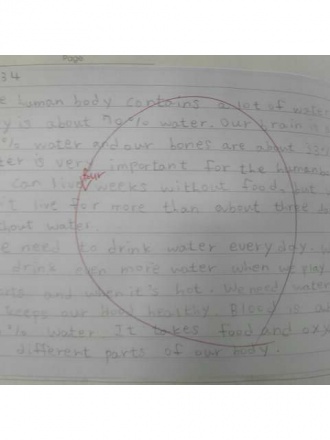 Page
34
e human body contains a lot of water
y is about 70% water. Our brain is
% water and our bones are about
ter is very important for the human
four
can live weeks without food, but
't live for more than about three
hout water.
e need to drink water every day. W
drink even more water when we play
and when it's hot. We need water
keeps our blood healthy. Blood is
% water It takes food and
different parts of our body.